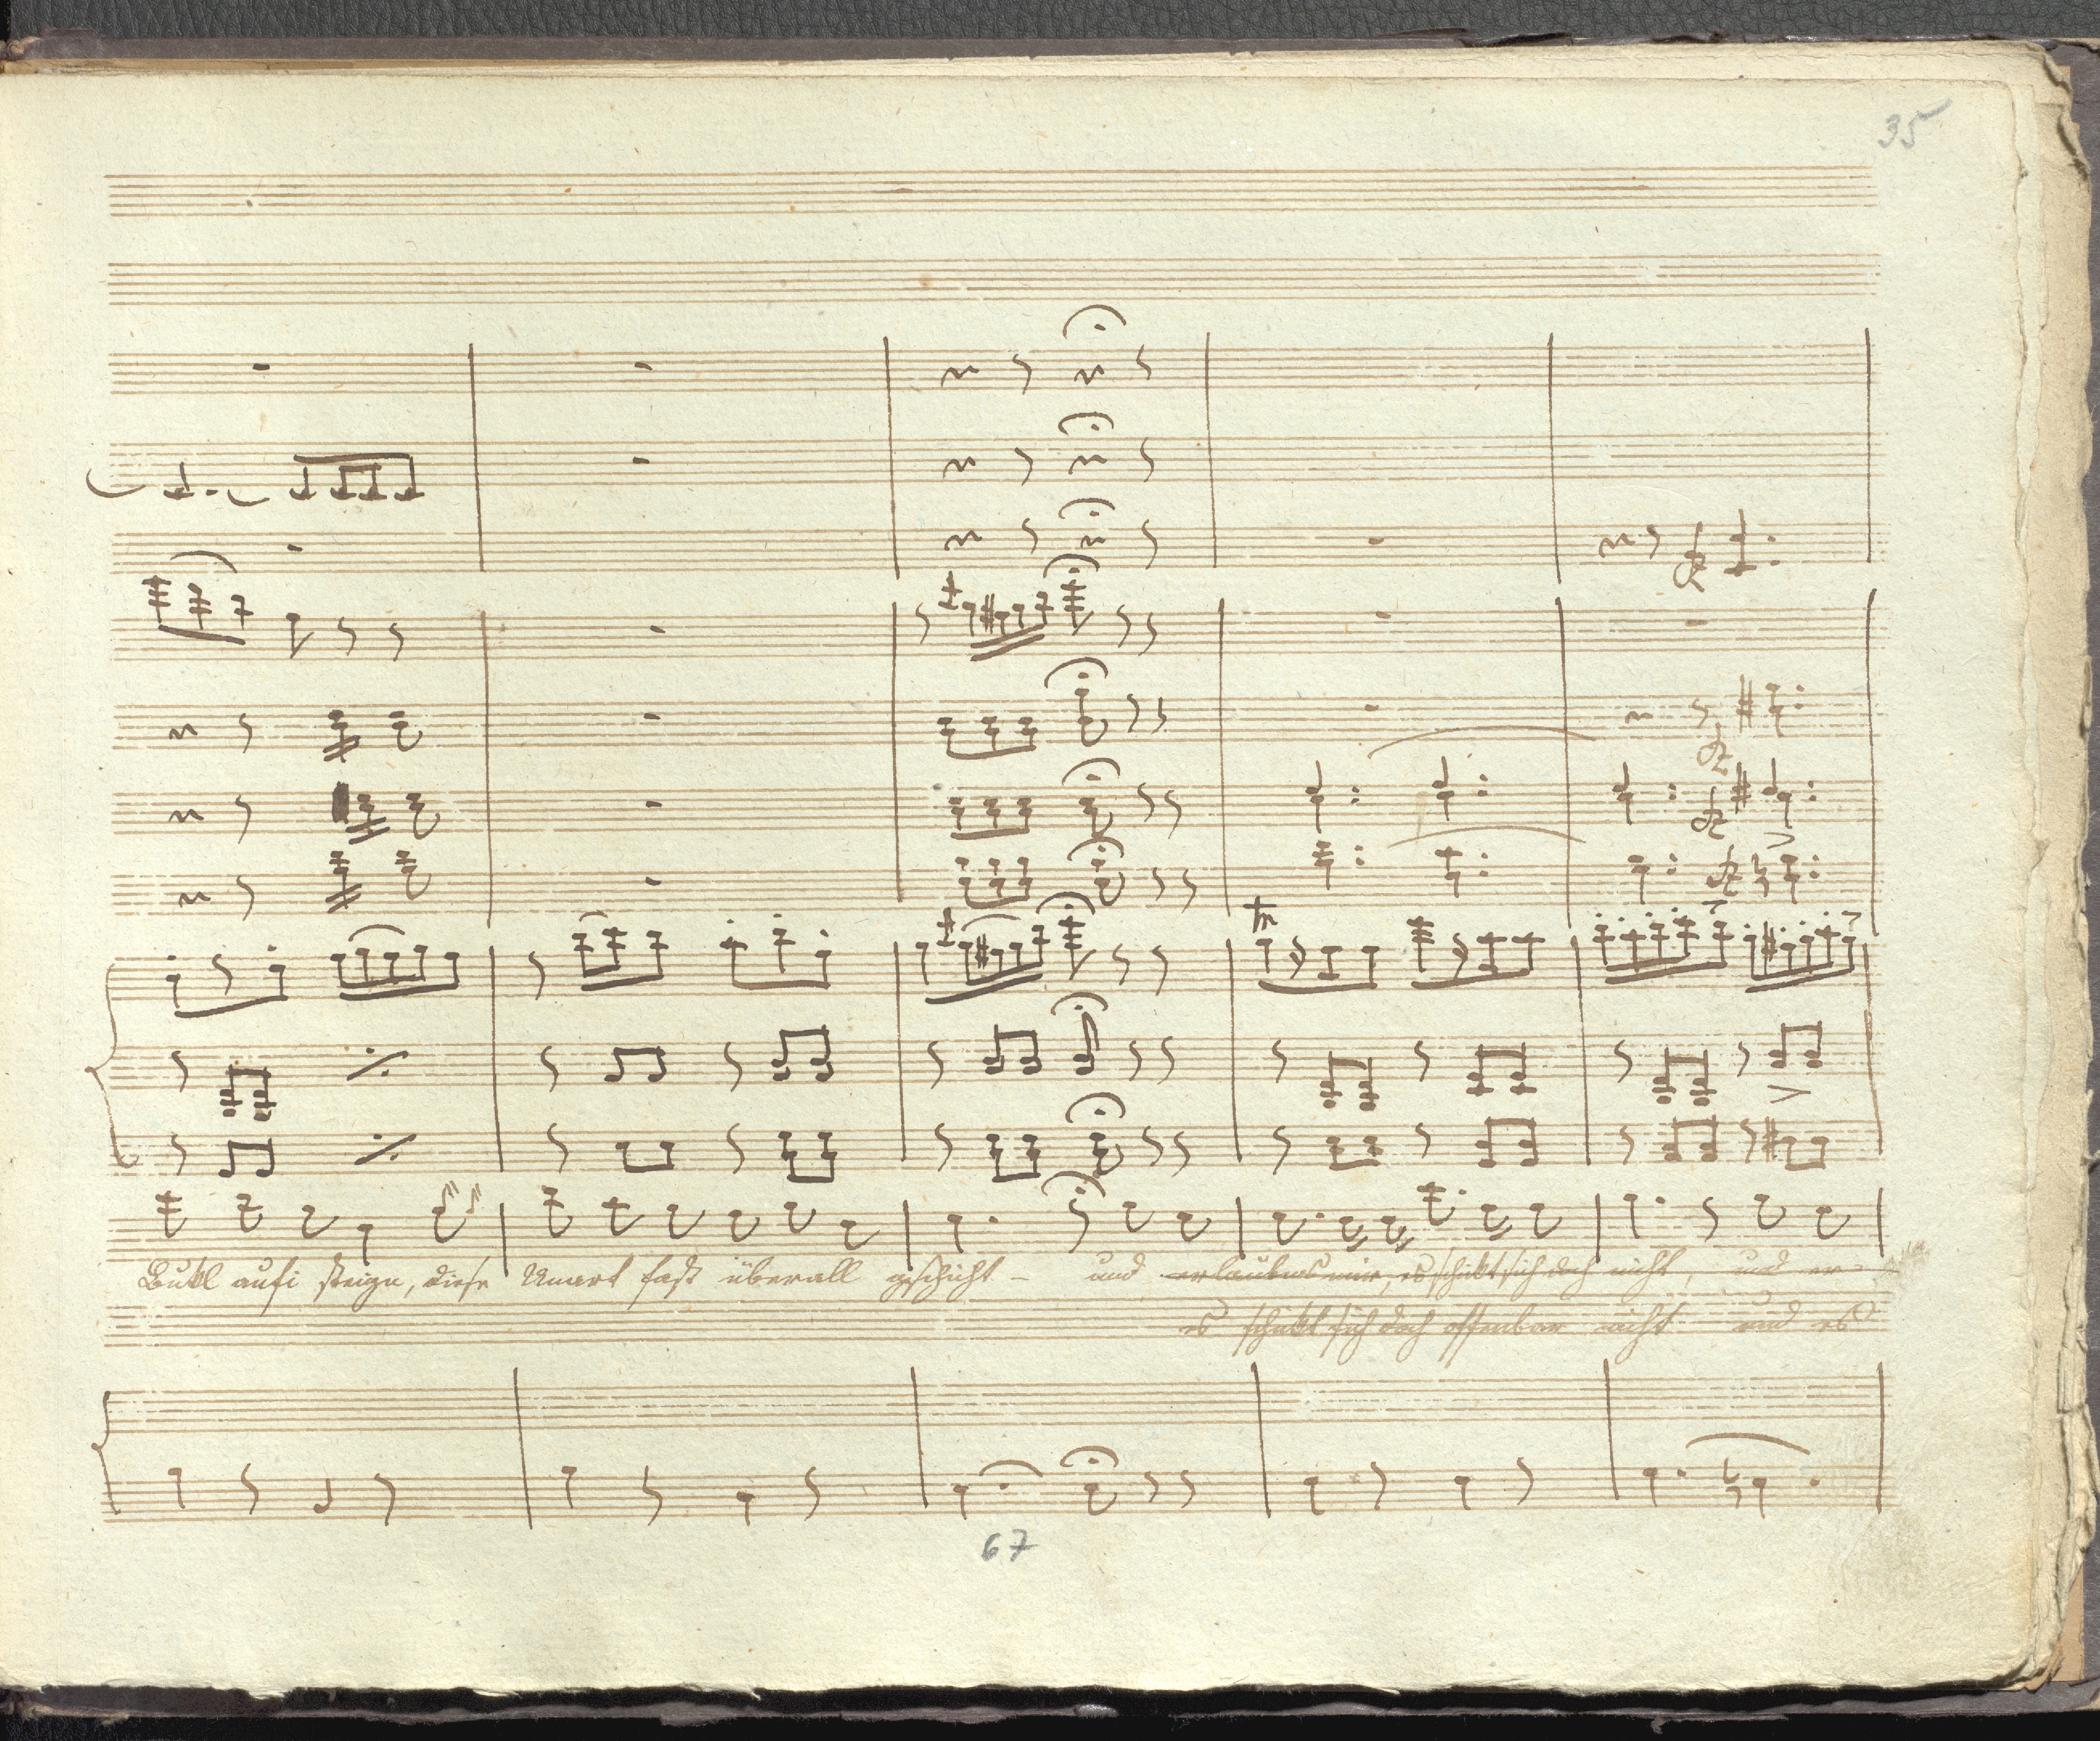 35
Bukl aufi steign, diese Unart fast überall geschicht - und erlaubens mir, es schikt sich doch nicht, und er-
es schikt sich doch offenbar nicht und es
67